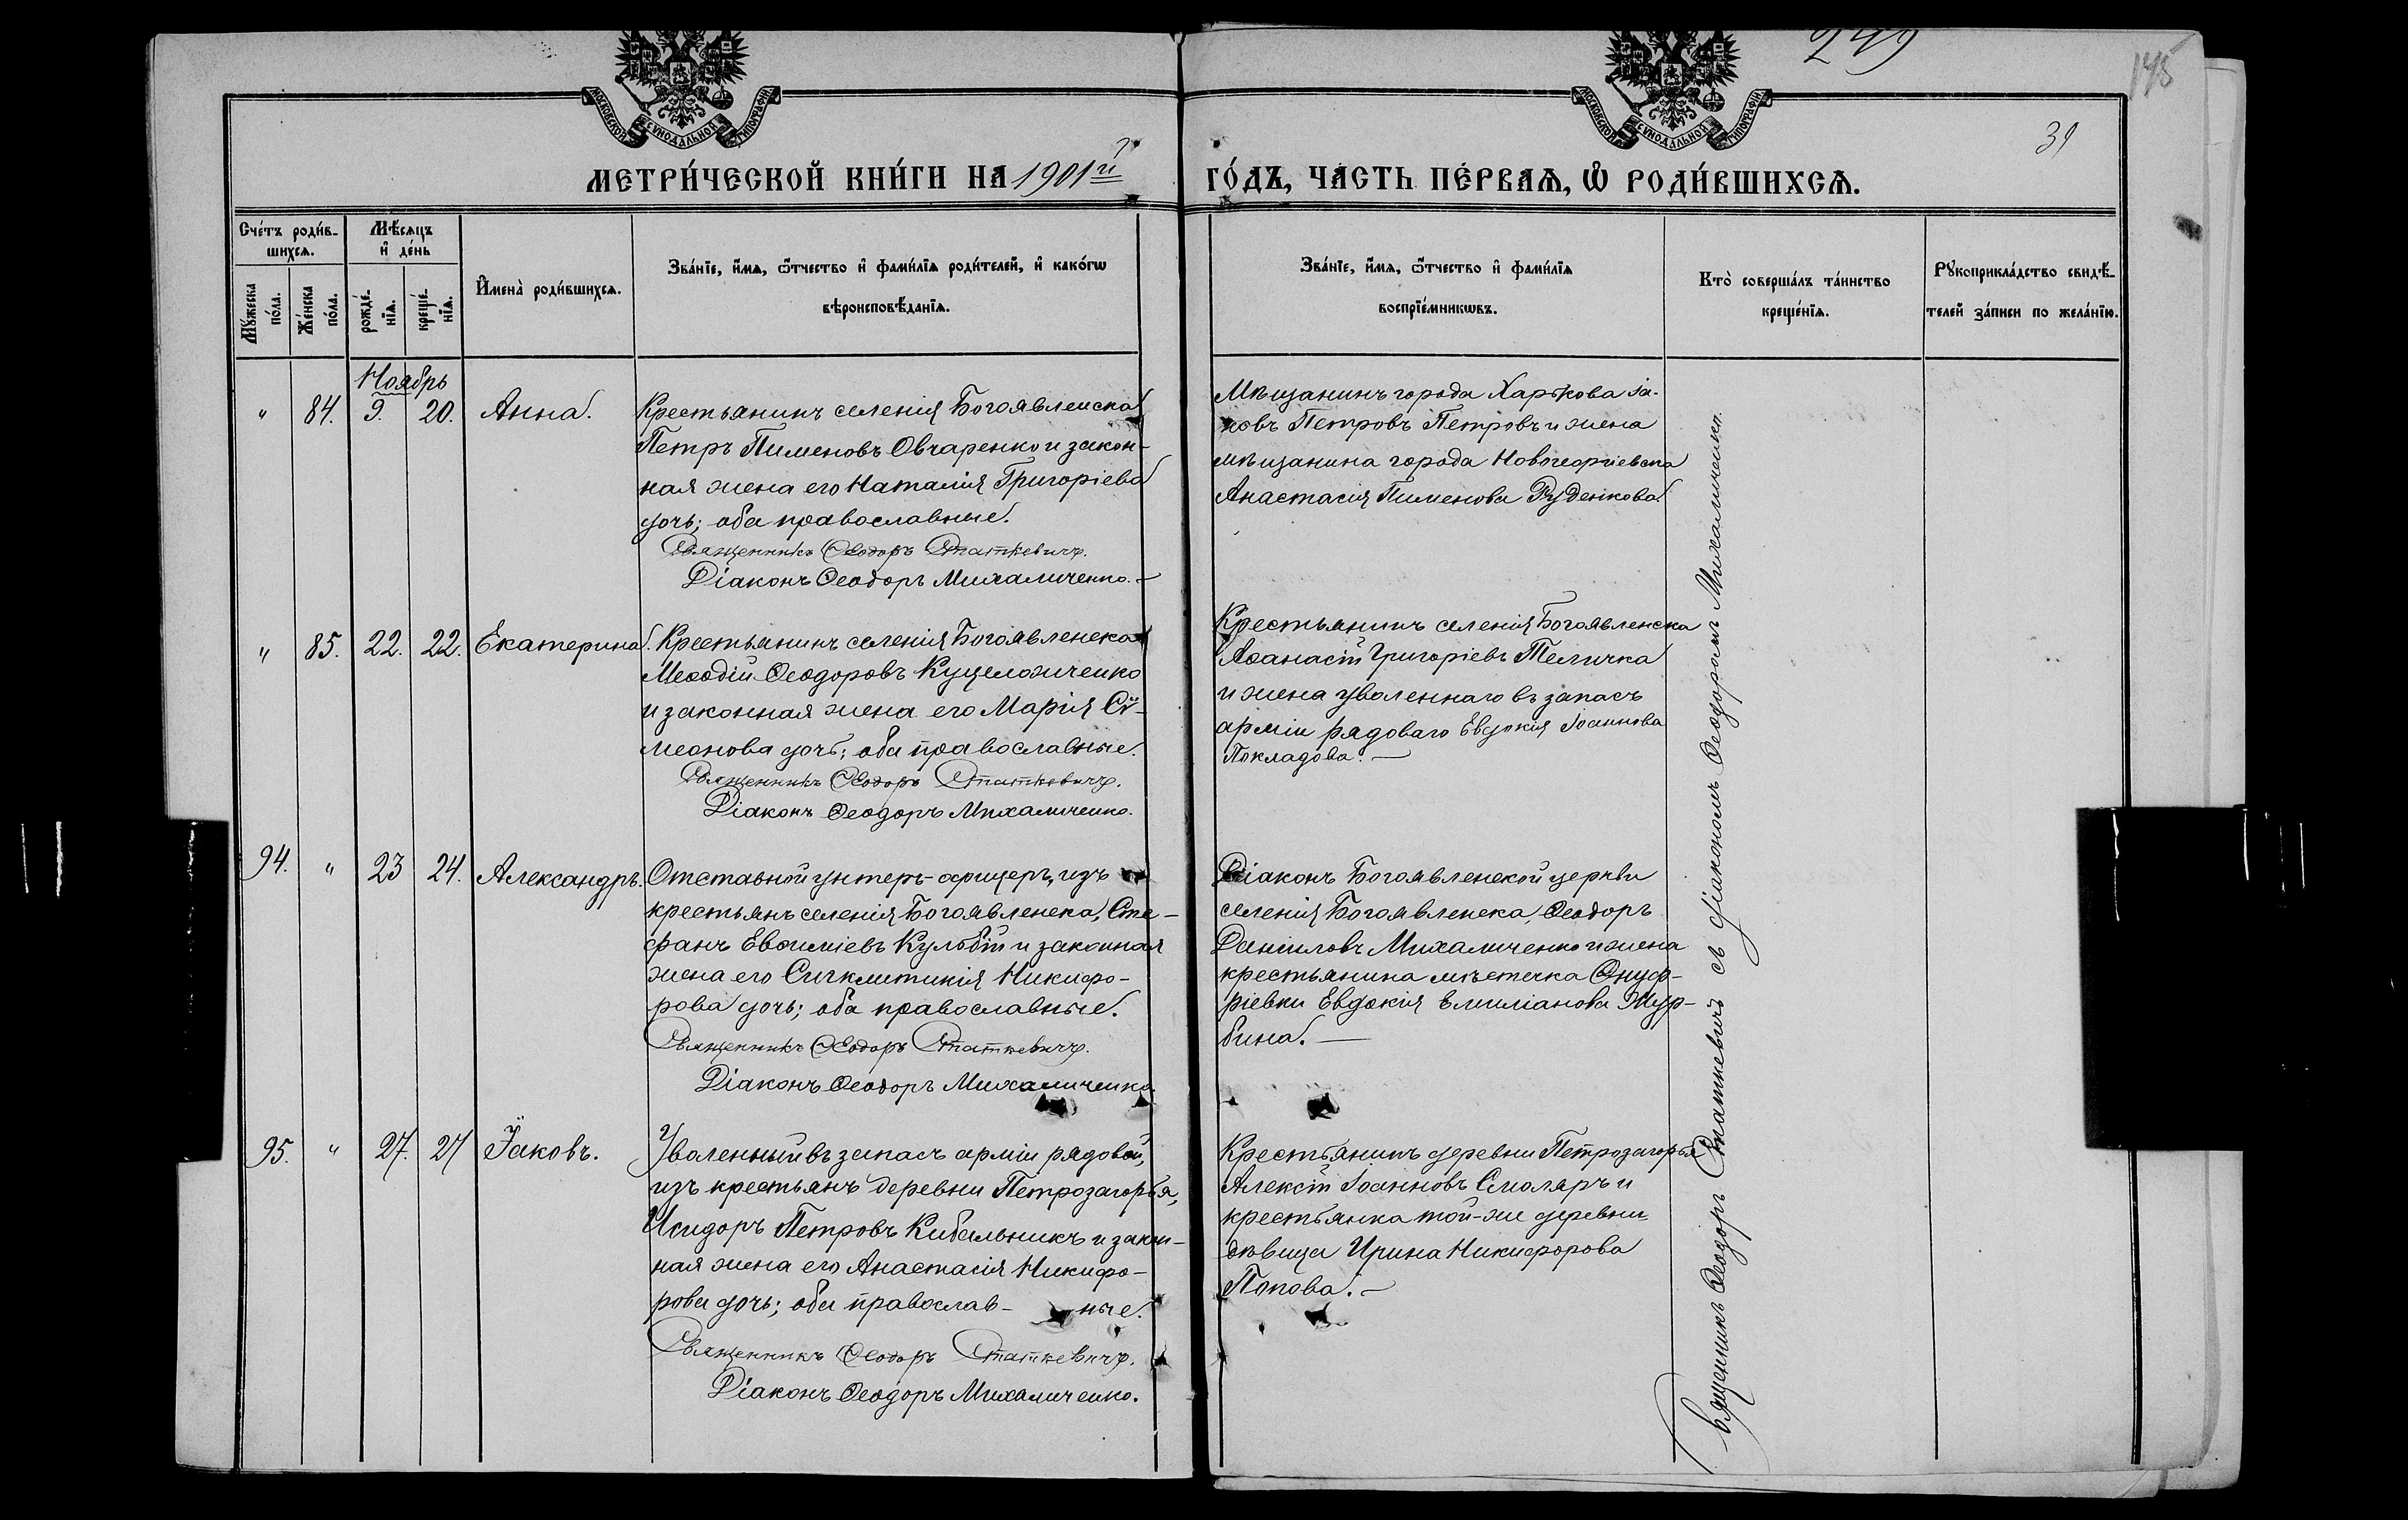 249
145
39
МОСКОВСКОЙ СѴНОДАЛЬНОЙ ТИПОГРАФІИ
МОСКОВСКОЙ СѴНОДАЛЬНОЙ ТИПОГРАФІИ
МЕТРИ́ЧЕСКОЙ КНИ́ГИ НА 1901й
ГО́ДЪ, ЧА́СТЬ ПЕ́РВАѦ, Ѡ҆ РОДИ́ВШИХСѦ.
Сче́тъ роди́в-
шихсѧ.
Мꙋ́жеска
по́ла.
Же́нска
по́ла.
Мѣ́сѧцъ
и҆ де́нь
рожде́-
нїѧ.
креще́-
нїѧ.
И҆мена̀ роди́вшихсѧ.
Зва́нїе, и҆́мѧ, ѻ҆́тчество и҆ фами́лїѧ роди́телей, и҆ како́гѡ
вѣроисповѣ́данїѧ.
Зва́нїе, и҆́мѧ, ѻ҆́тчество и҆ фами́лїѧ
воспрїе́мникѡвъ.
Кто̀ соверша́лъ та́инство
креще́нїѧ.
Рꙋкоприкла́дство свидѣ́-
телей за́писи по жела́нїю.
Ноябрь
" 84. 9. 20. Анна.
Крестьянинъ селенія Богоявленска
Петръ Пименовъ Овчаренко и закон-
ная жена его Наталія Григоріева
дочь; оба православные.
Священникъ Ѳеодоръ Статкевичъ.
Діаконъ Ѳеодоръ Михаличенко.
Мѣщанинъ города Харькова Іа-
ковъ Петровъ Петровъ и жена
мѣщанина города Новогеоргіевска
Анастасія Пименова Руденкова
" 85. 22. 22. Екатерина.
Крестьянинъ селенія Богоявленска
Меѳодій Ѳеодоровъ Куцеложченко
и законная жена его Марія Сѵ-
меонова дочь; оба православные.
Священникъ Ѳеодоръ Статкевичъ.
Діаконъ Ѳеодоръ Михаличенко.
Крестьянинъ селенія Богоявленска
Аѳанасій Григоріевъ Теличка
и жена уволеннаго въ запасъ
арміи рядоваго Евдокія Іоаннова
Покладова.
94. " 23 24. Александръ.
Отставной унтеръ-офицеръ, изъ
крестьянъ селенія Богоявленска, Сте-
фанъ Евѳиміевъ Кульбій и законная
жена его Сигклитикія Никифо-
рова дочь; оба православные.
Священникъ Ѳеодоръ Статкевичъ.
Діаконъ Ѳеодоръ Михаличенко
Діаконъ Богоявленской церкви
селенія Богоявленска, Ѳеодоръ
Даніиловъ Михаличенко и жена
крестьянина мѣстечка Онуф-
ріевки Евдокія Емиліанова Жур-
бина.
95. " 27. 27 Іаковъ.
Уволенный въ запасъ арміи рядовой,
изъ крестьянъ деревни Петрозагорья,
Исидоръ Петровъ Кибальникъ и закон-
ная жена его Анастасія Никифо-
рова дочь; оба православ- ные.
Священникъ Ѳеодоръ Статкевичъ.
Діаконъ Ѳеодоръ Михаличенко.
Крестьянинъ деревни Петрозагорья
Алексій Іоанновъ Смоляръ и
крестьянка той-же деревни
дѣвица Ирина Никифорова
Попова.
Священникъ Ѳеодоръ Статкевичъ съ діакономъ Ѳеодоромъ Михаличенко.